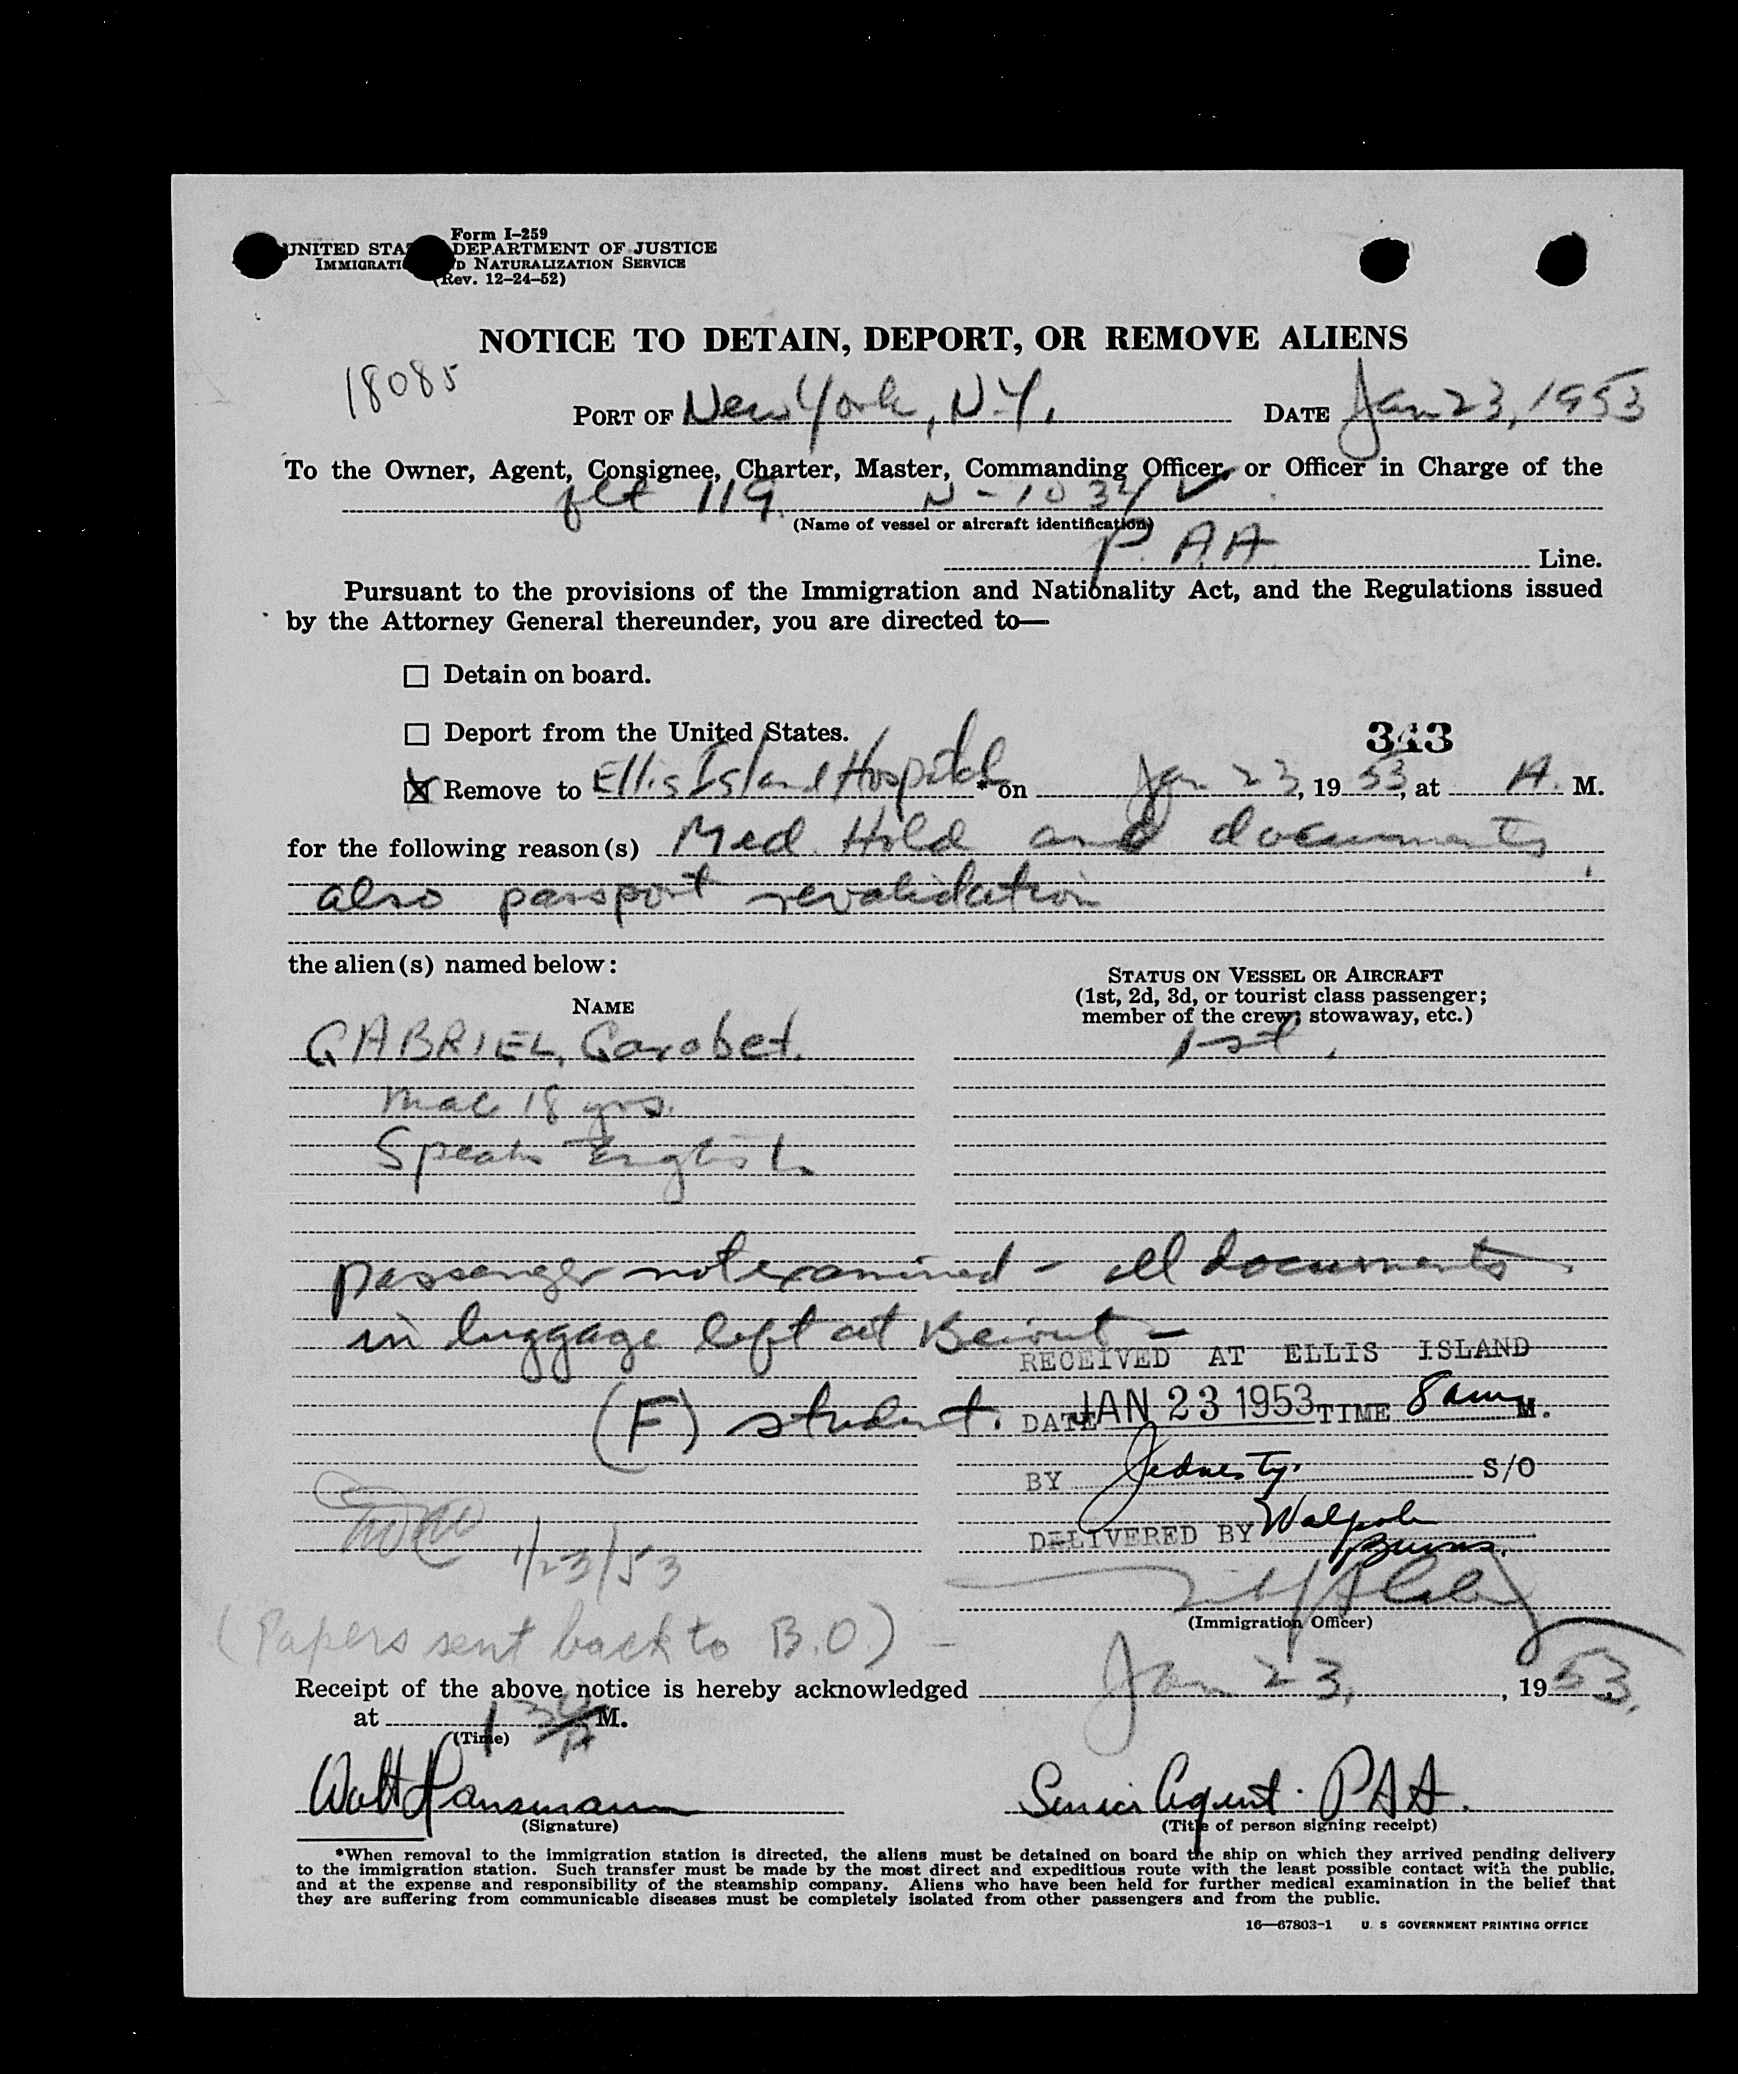 Form I-259
UNITED STA DEPARTMENT OF JUSTICE
IMMIGRATI D NATURALIZATION SERVICE
(Rev. 12-24-52)
NOTICE TO DETAIN, DEPORT, OR REMOVE ALIENS
18085
PORT OF New York, N.Y. DATE Jan 23, 1953
To the Owner, Agent, Consignee, Charter, Master, Commanding Officer, or Officer in Charge of the
flt 119. N-1034V
(Name of vessel or aircraft identification)
P.A.A. Line.
Pursuant to the provisions of the Immigration and Nationality Act, and the Regulations issued
by the Attorney General thereunder, you are directed to—
☐ Detain on board.
☐ Deport from the United States.
343
☒ Remove to Ellis Island Hospital * on Jan 23, 1953, at A. M.
for the following reason(s) Med. Hold and documents,
also passport revalidation
the alien(s) named below:
STATUS ON VESSEL OR AIRCRAFT
(1st, 2d, 3d, or tourist class passenger;
member of the crew; stowaway, etc.)
NAME
GABRIEL, Garabet. 1st.
mac 18 yrs.
Speaks English
passenger not examined - all documents
in luggage left at Beirut -
RECEIVED AT ELLIS ISLAND
(F) student. DATE JAN 23 1953 TIME 8 am M.
BY S/O
DELIVERED BY Walpole
Burns.
1/23/53
(Immigration Officer)
(Papers sent back to B.O.) -
Receipt of the above notice is hereby acknowledged Jan 23, 1953.
at 1 30 A M.
(Time)
Walt Hansmann Senior Agent. PAA.
(Signature) (Title of person signing receipt)
*When removal to the immigration station is directed, the aliens must be detained on board the ship on which they arrived pending delivery
to the immigration station. Such transfer must be made by the most direct and expeditious route with the least possible contact with the public,
and at the expense and responsibility of the steamship company. Aliens who have been held for further medical examination in the belief that
they are suffering from communicable diseases must be completely isolated from other passengers and from the public.
16—67803-1 U. S GOVERNMENT PRINTING OFFICE